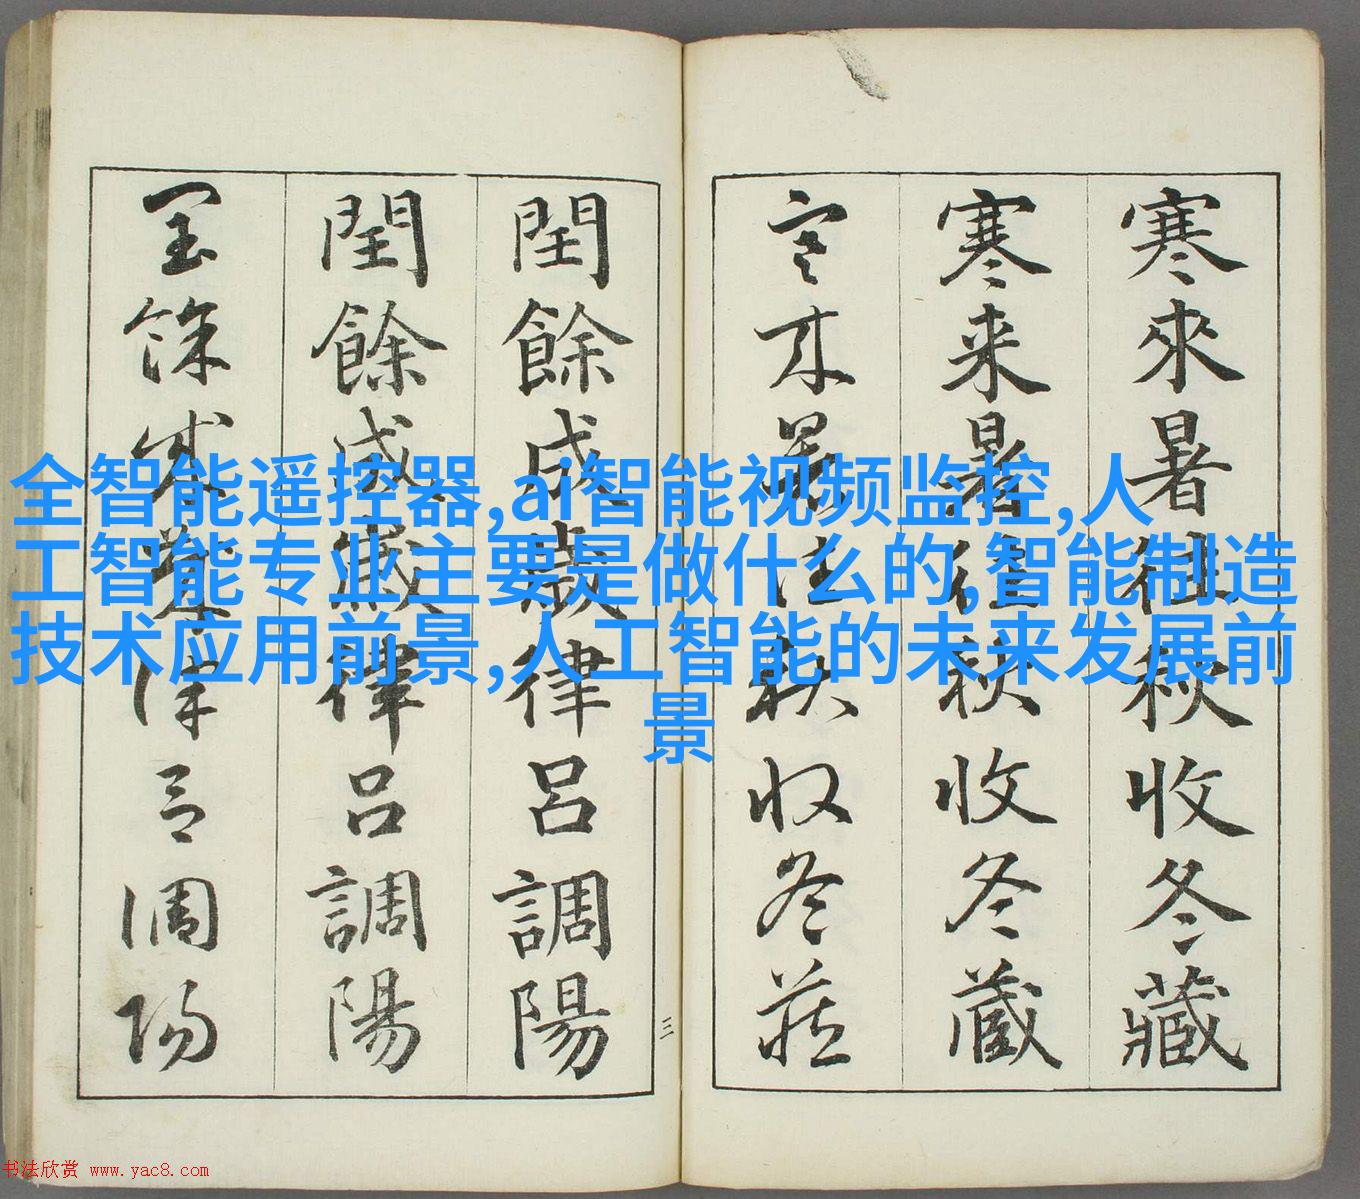 寒來暑往秋收冬藏
寒来暑往秋收冬蔵
寒来暑往秋収冬蔵
閏餘成歲律呂調陽
閏餘成歲律呂調陽
閏餘成歲律呂調陽
三
全智能遥控器,ai智能视频监控,人
工智能专业主要是做什么的,智能制造
技术应用前景,人工智能的未来发展前
景
书法欣赏 www.yac8.com